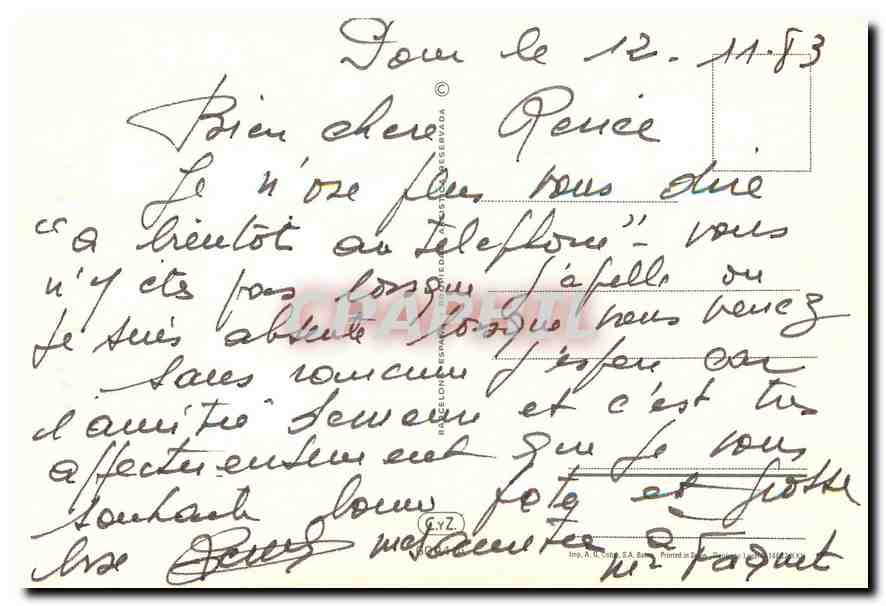 Dour le 12.11.83
Bien chere Renée
Je n'ose plus vous dire
"a bientôt au telephone" - vous
n'y êtes pas lorsque j'apelle ou
je suis absente lorsque vous venez
sans rancune j'espere car
l'amitié demeure et c'est tres
affectueusement que je vous
souhaite bonne fete et grosse
bise
mr Faquet
©
BARCELONA ESPAÑA PROPIEDAD ARTISTICA RESERVADA
C.yZ.
Imp. A. G. S.A. Printed in Spain
CPAPHIL